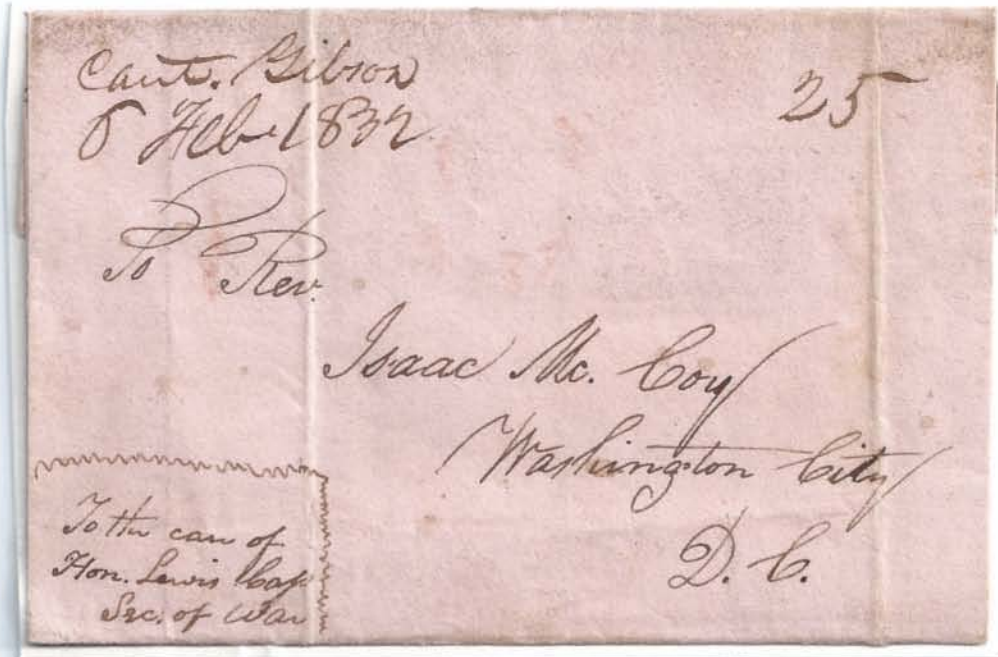 Cant. Gibson
8 Feb 1832
25
To Rev.
Isaac Mc. Coy
Washington City
D. C.
To the care of
Hon. Lewis Cass
Sec. of War